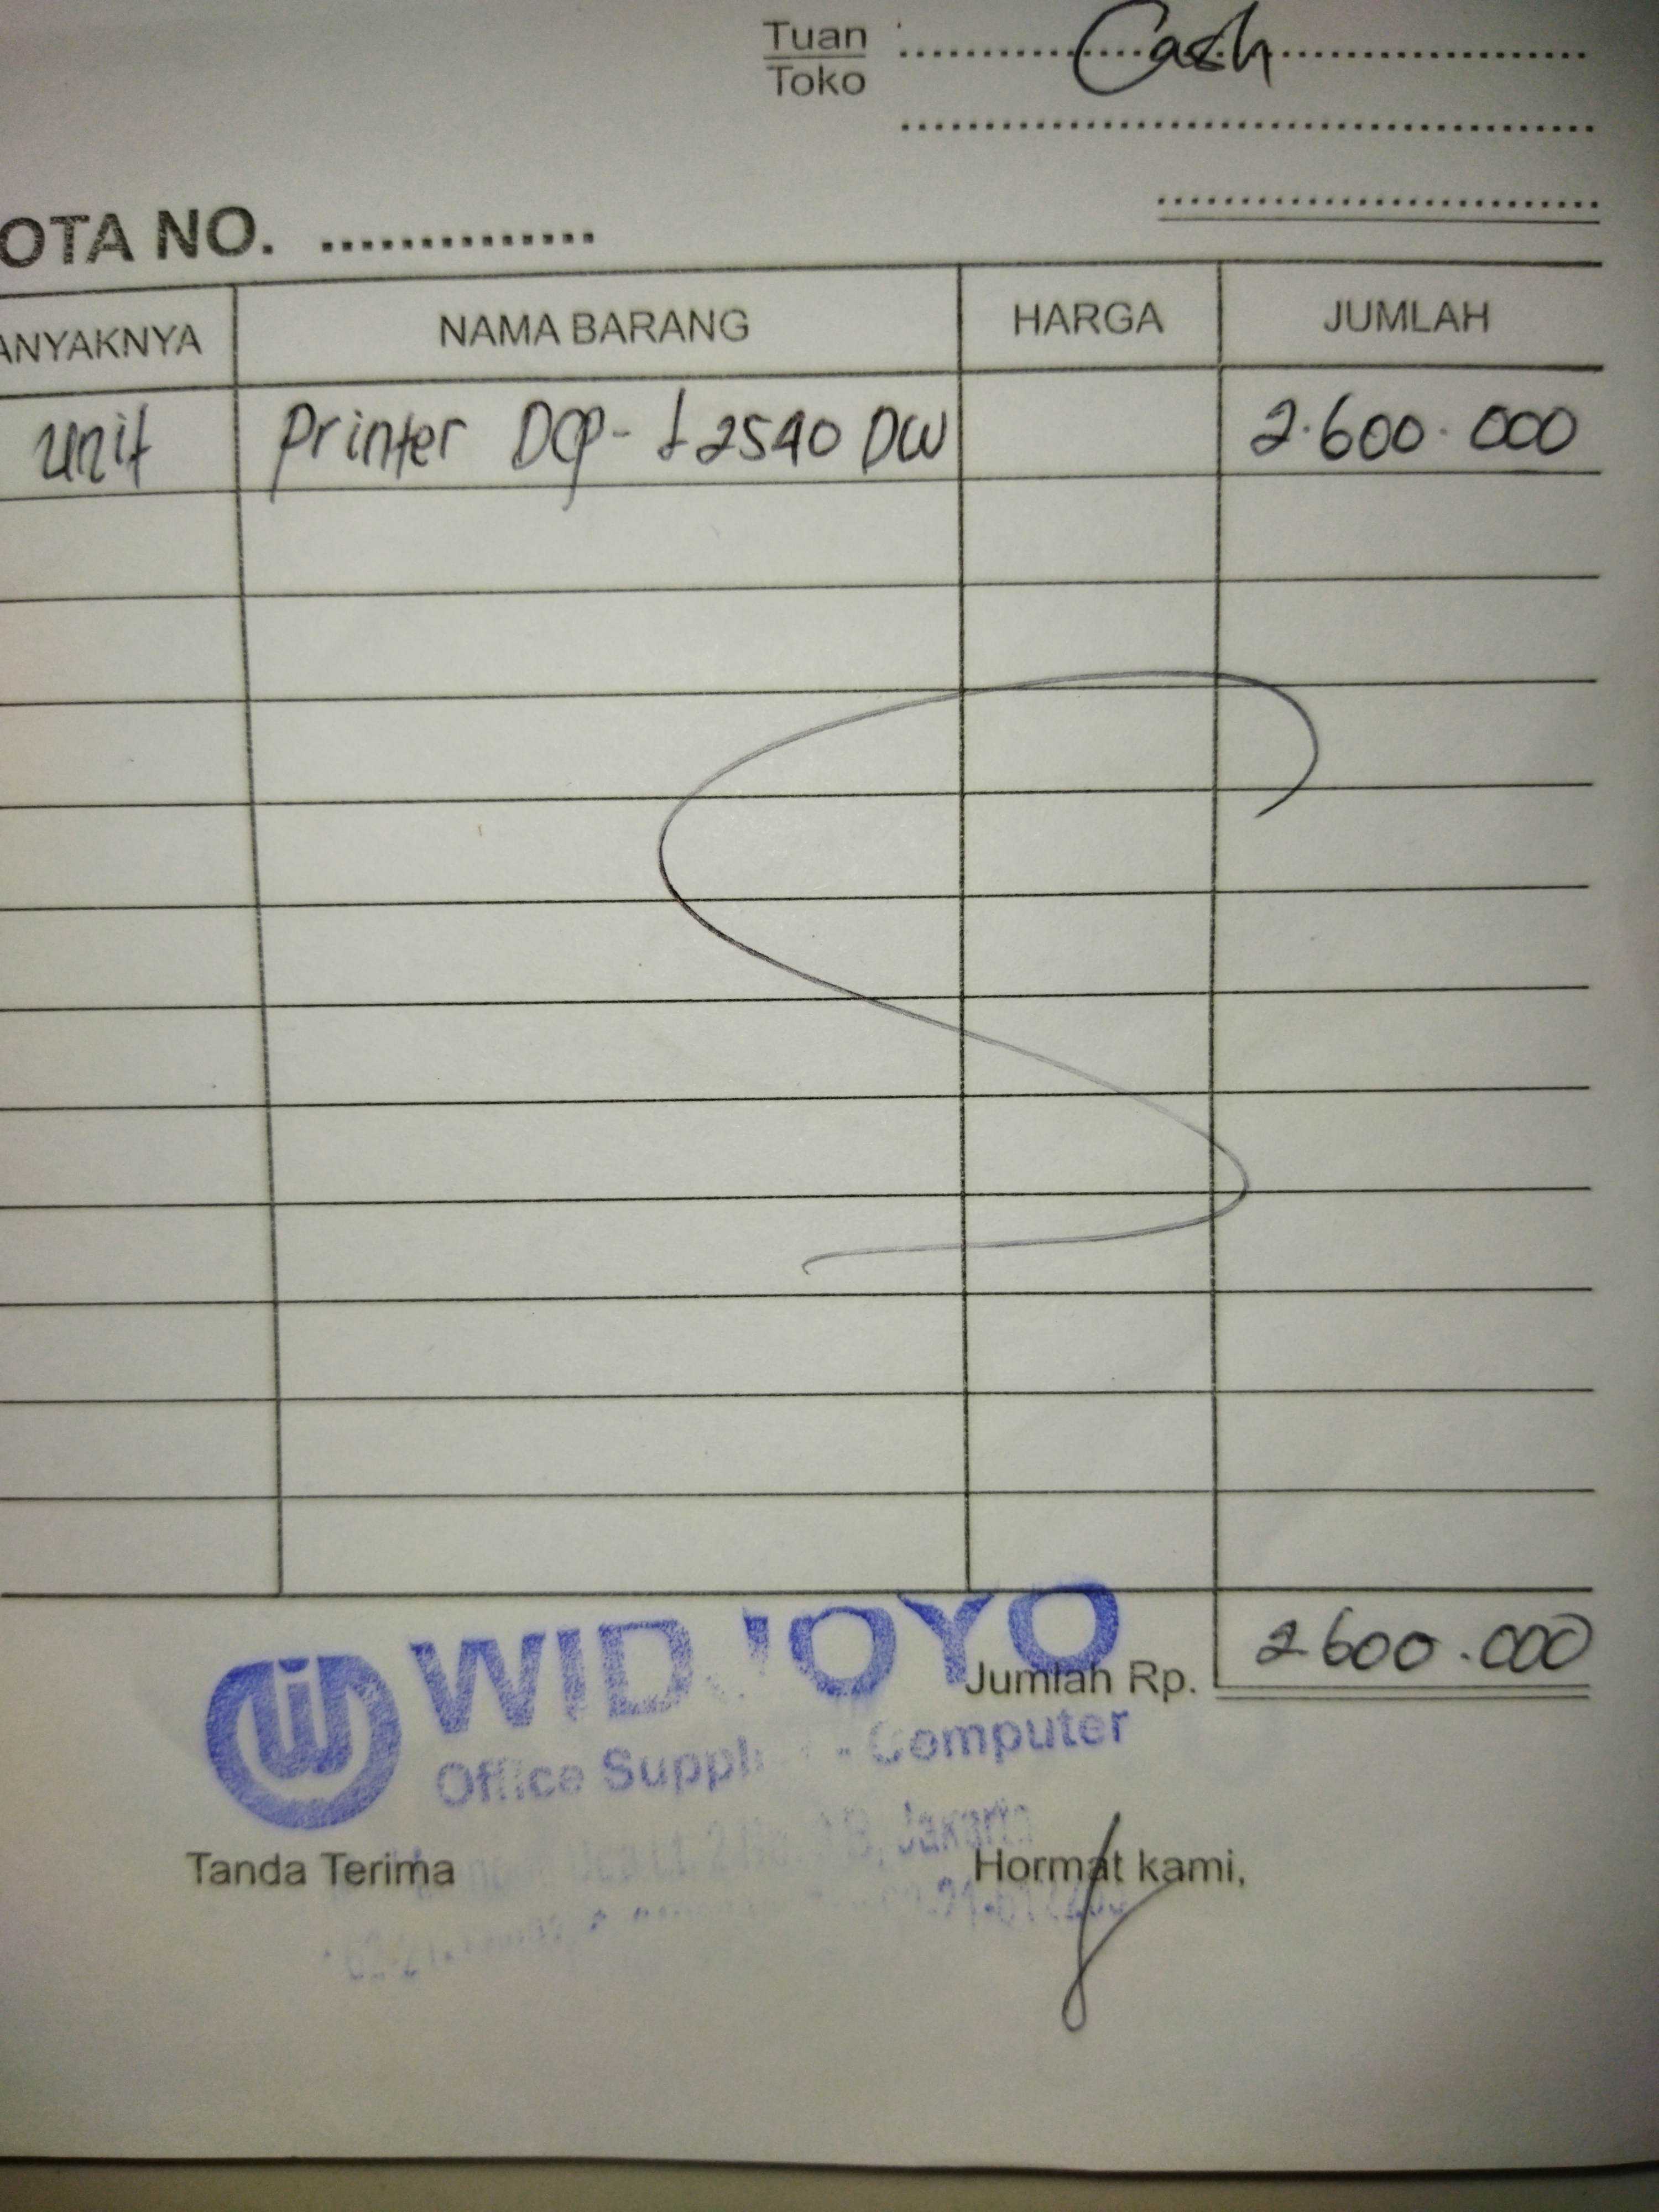 Tuan
Toko
Cash
OTA NO.
ANYAKNYA NAMA BARANG HARGA JUMLAH
unit Printer DCP-L2540 DW 2.600.000
WIDJOYO
Jumlah Rp. 2600.000
Office Suppl - Computer
Jakarta
Tanda Terima Hormat kami,